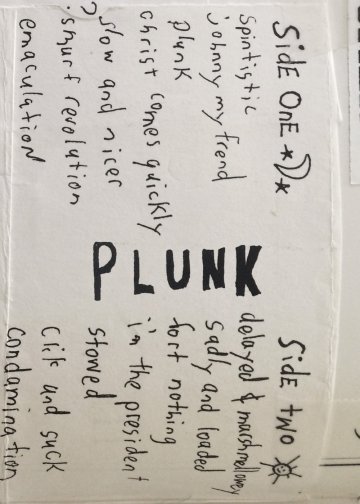 SidE OnE
Spintistic
johnny my frend
plunk
christ comes quickly
slow and nicer
?smurf revolution?
emaculation
PLUNK
Side two
delayed & marshmellowy
sadly and loaded
fort nothing
i'm the president
stowed
clik and suck
condamination